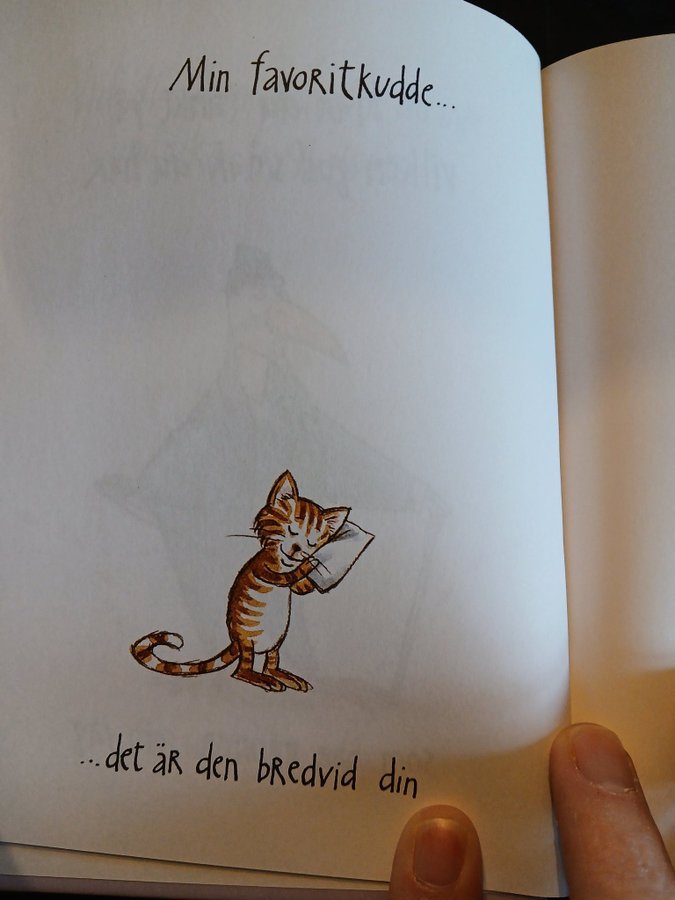 Min favoritkudde...
...det är den bredvid din